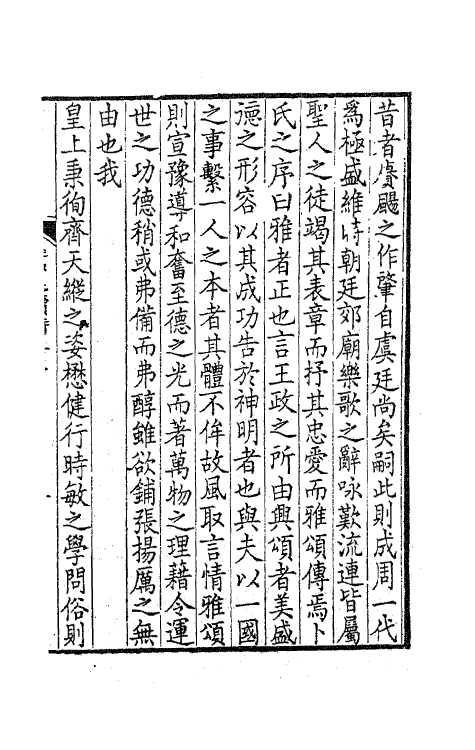 昔者賡颺之作肇自虞廷尚矣嗣此則成周一代
為極盛維時朝廷郊廟樂歌之辭咏歎流連皆屬
聖人之徒竭其表章而抒其忠愛而雅頌傳焉卜
氏之序曰雅者正也言王政之所由興頌者美盛
德之形容以其成功告於神明者也與夫以一國
之事繫一人之本者其體不侔故風取言情雅頌
則宣豫導和奮至德之光而著萬物之理藉令運
世之功德稍或弗備而弗醇雖欲鋪張揚厲之無
由也我
皇上秉徇齊天縱之姿懋健行時敏之學問俗則